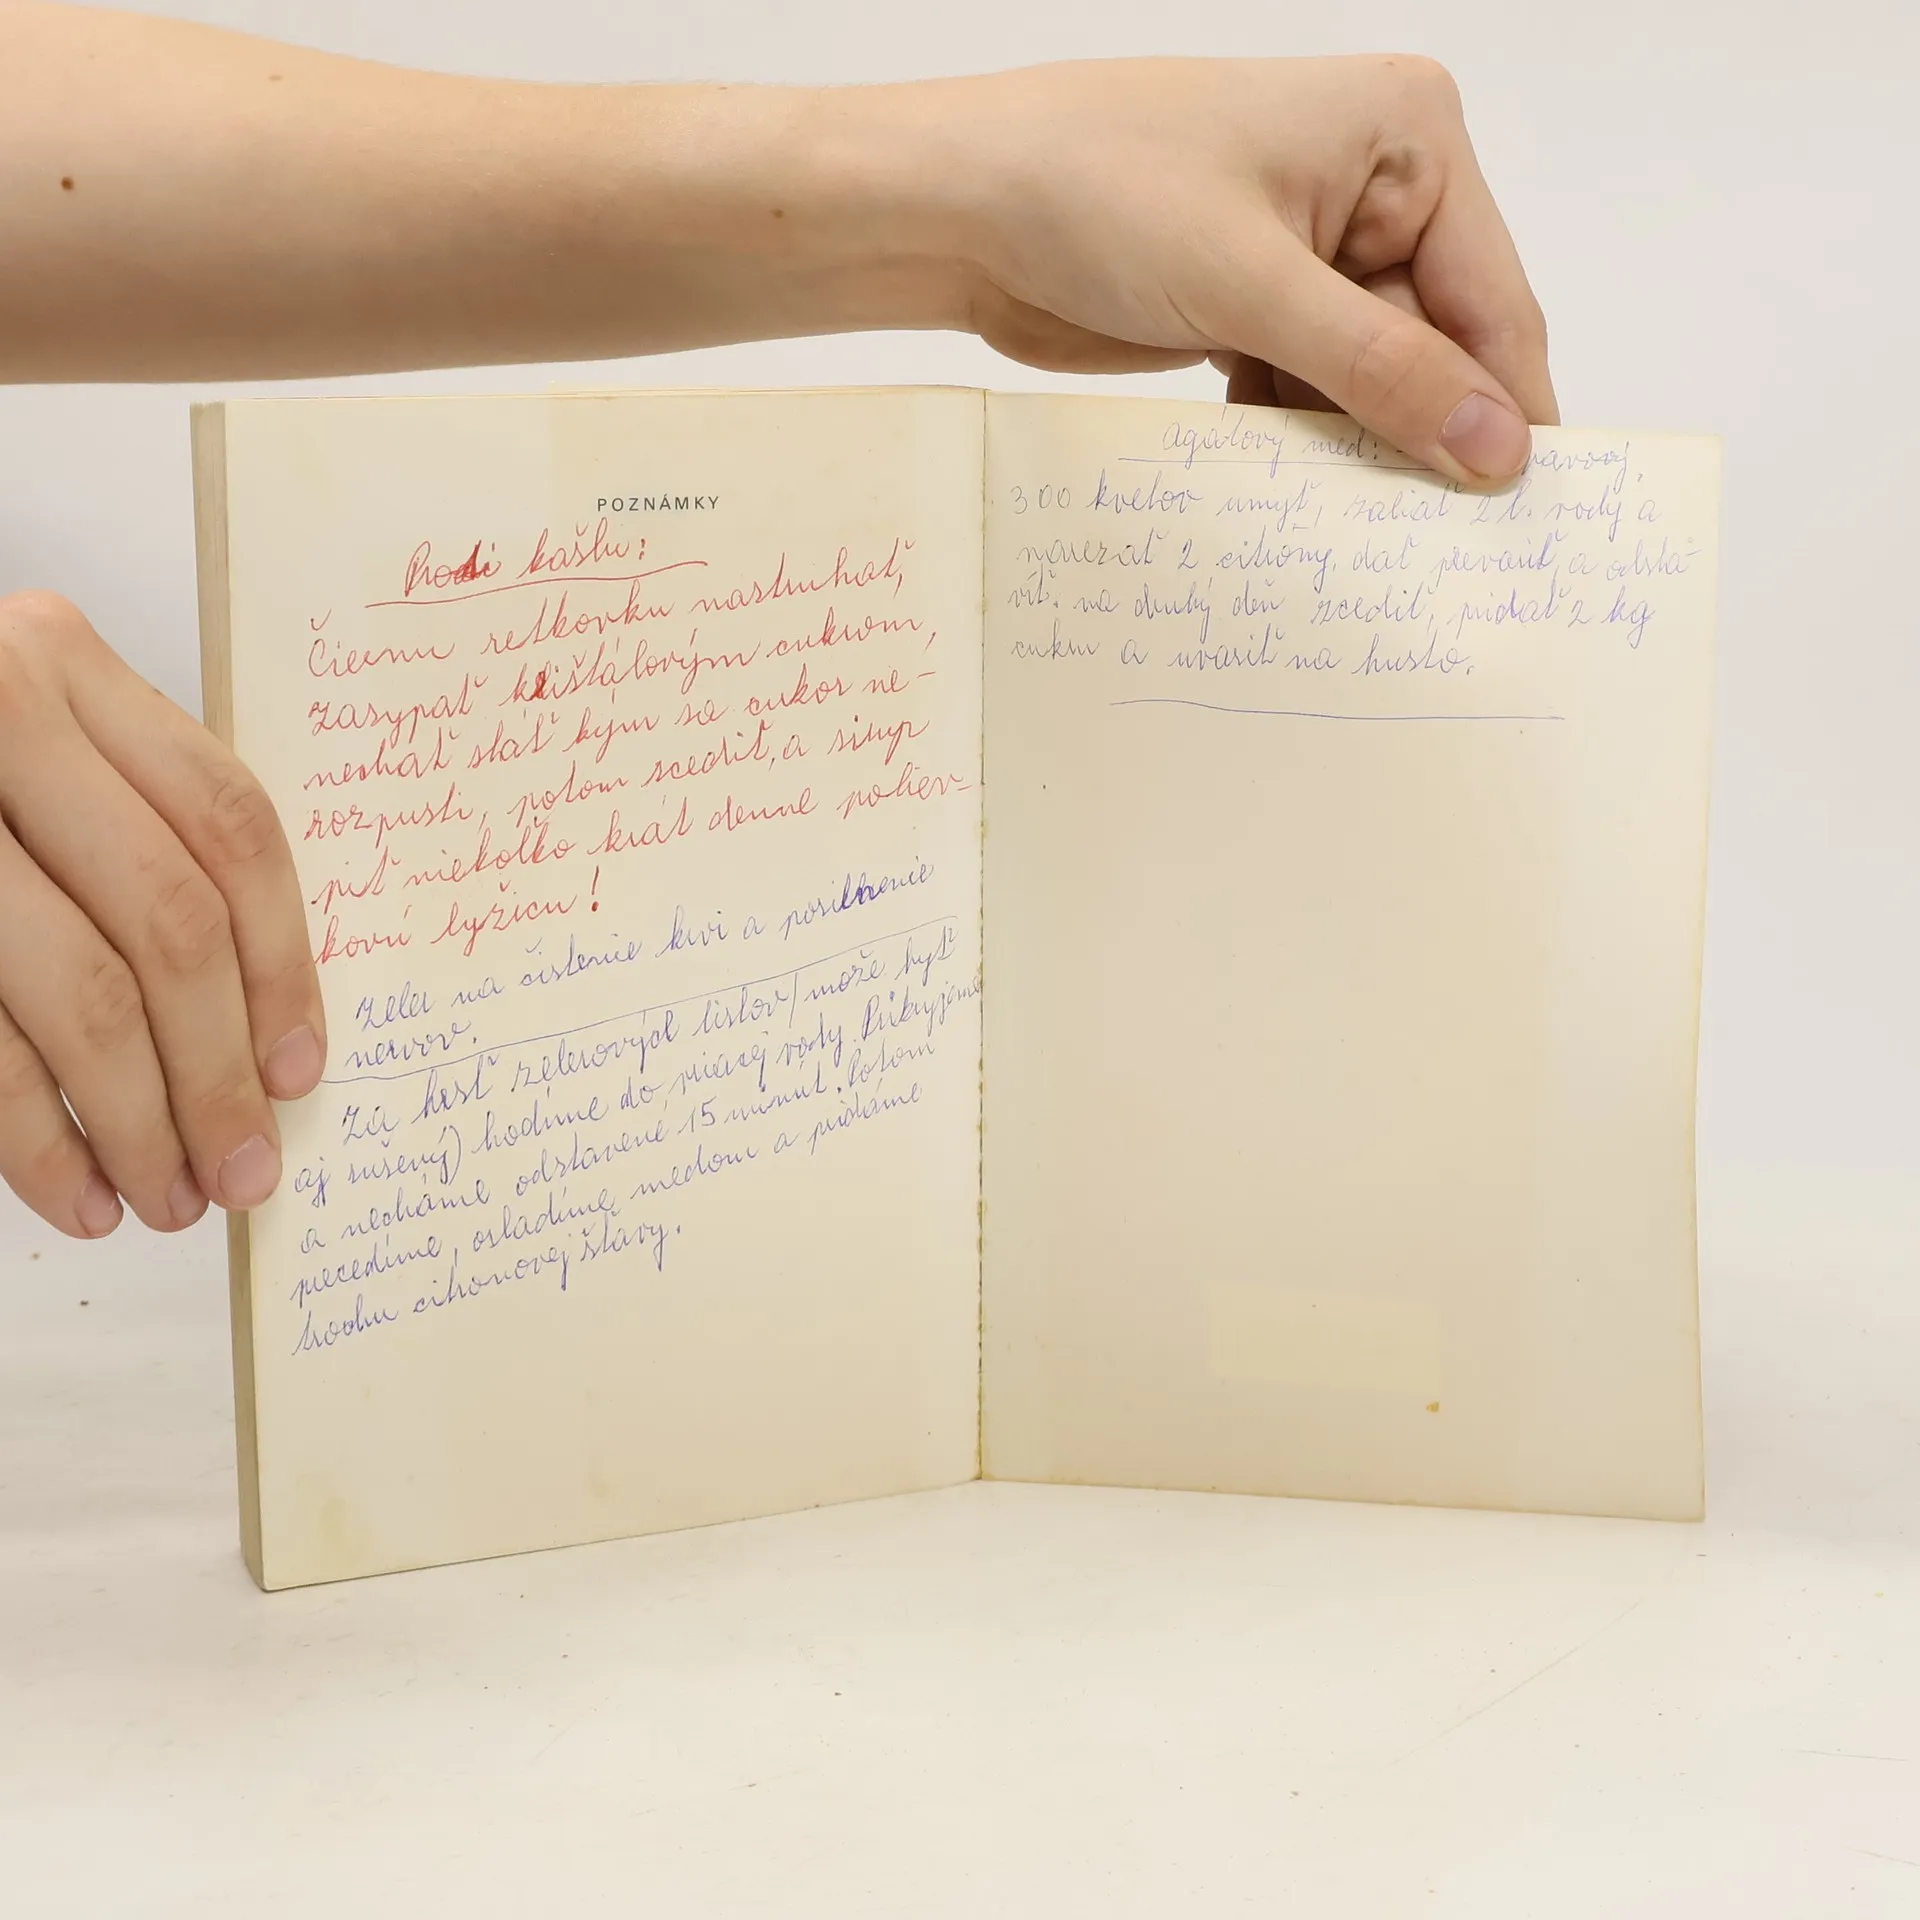 POZNÁMKY
Proti kašlu:
Čiernu retkovku nastruhať,
zasypať krištálovým cukrom,
nechať stáť kým sa cukor ne-
rozpustí, potom scediť, a sirup
piť niekoľko krát denne poliev-
kovú lyžicu!
Zeler na čistenie krvi a posilnenie
nervov.
Za hrsť zelerových listov (može byť
aj sušený) hodíme do vriacej vody. Prikryjeme
a necháme odstavené 15 minút. Potom
precedíme, osladíme medom a pridáme
trochu citronovej šťavy.
Agátový med:
300 kvetov umyť, zaliať 2 l. vody a
narezať 2 citróny, dať prevariť, a odsta-
viť. na druhý deň scediť, pridať 2 kg
cukru a uvariť na husto.